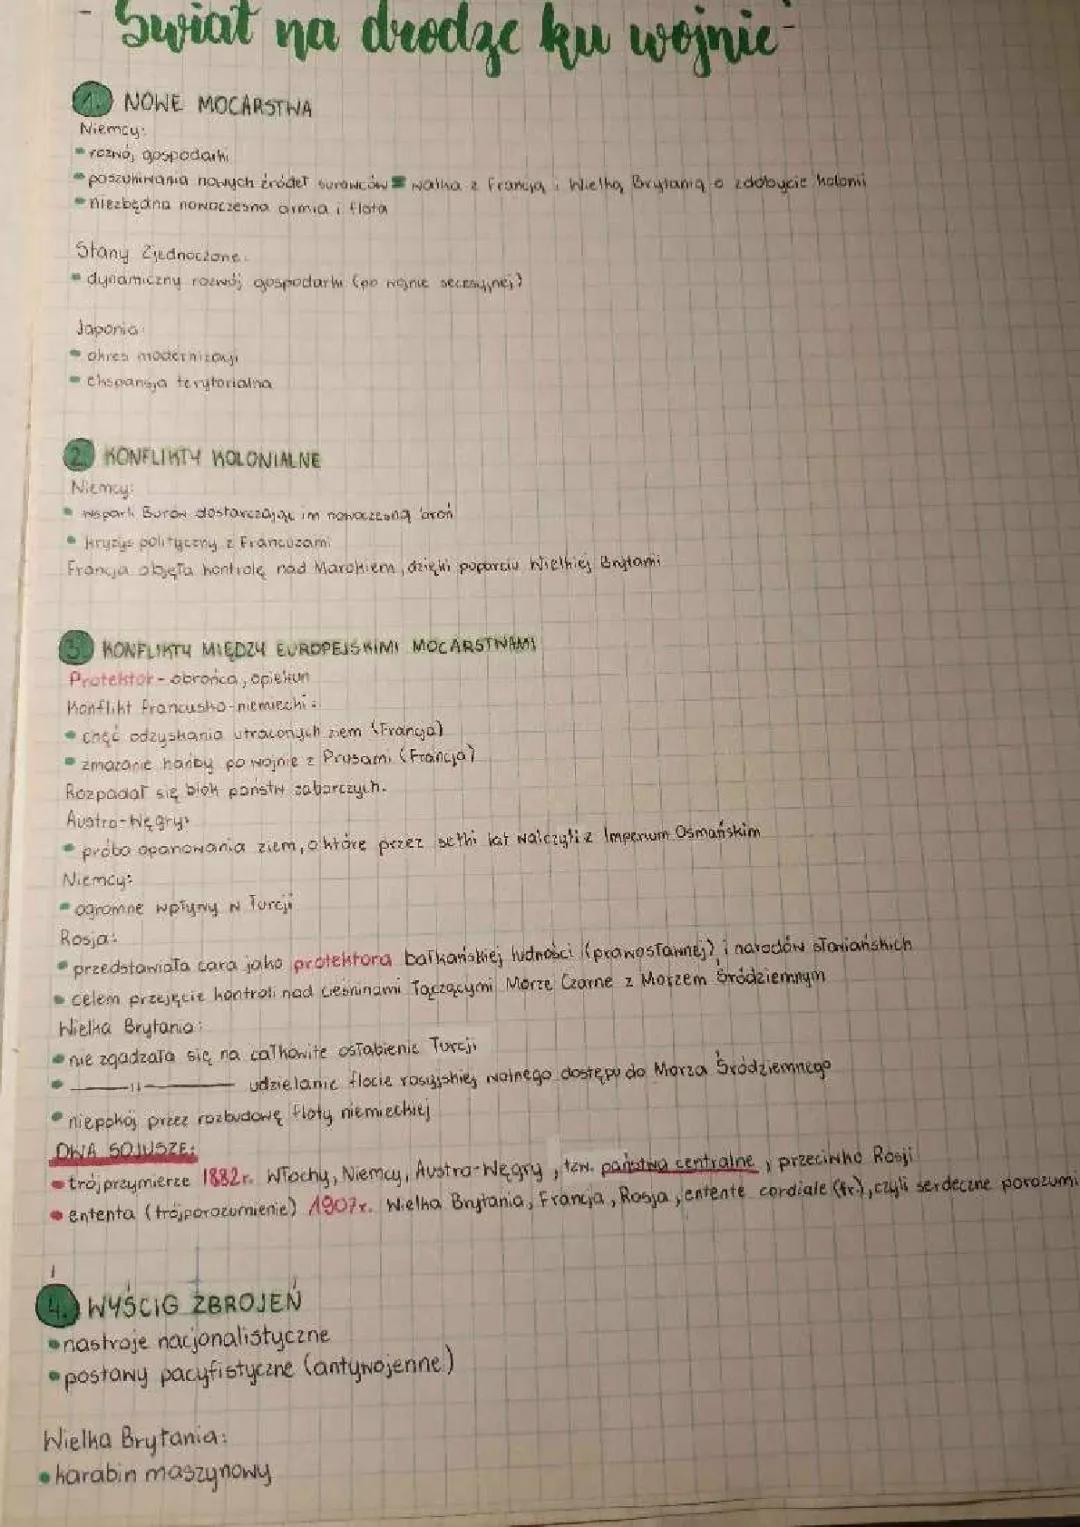 - Świat na drodze ku wojnie -
1. NOWE MOCARSTWA
Niemcy:
• rozwój gospodarki
• poszukiwania nowych źródeł surowców = walka z Francją i Wielką Brytanią o zdobycie kolonii
• niezbędna nowoczesna armia i flota
Stany Zjednoczone:
• dynamiczny rozwój gospodarki (po wojnie secesyjnej)
Japonia:
• okres modernizacji
• ekspansja terytorialna
2. KONFLIKTY KOLONIALNE
Niemcy:
• wsparli Burów dostarczając im nowoczesną broń
• kryzys polityczny z Francuzami
Francja objęła kontrolę nad Marokiem, dzięki poparciu Wielkiej Brytami
3. KONFLIKTY MIĘDZY EUROPEJSKIMI MOCARSTWAMI
Protektor - obrońca, opiekun
Konflikt francusko-niemiecki:
• chęć odzyskania utraconych ziem (Francja)
• zmazanie hańby po wojnie z Prusami (Francja)
Rozpadał się blok państw zaborczych.
Austro-Węgry:
• próba opanowania ziem, o które przez setki lat walczyli z Imperium Osmańskim
Niemcy:
• ogromne wpływy w Turcji
Rosja:
• przedstawiała cara jako protektora bałkańskiej ludności (prawosławnej) i narodów słowiańskich
• celem przejęcie kontroli nad cieśninami łączącymi Morze Czarne z Morzem Śródziemnym
Wielka Brytania:
• nie zgadzała się na całkowite osłabienie Turcji
• —11— udzielanie flocie rosyjskiej wolnego dostępu do Morza Śródziemnego
• niepokój przez rozbudowę floty niemieckiej
DWA SOJUSZE:
• trójprzymierze 1882r. Włochy, Niemcy, Austro-Węgry, tzw. państwa centralne, przeciwko Rosji
• ententa (trójporozumienie) 1907r. Wielka Brytania, Francja, Rosja, entente cordiale (fr.), czyli serdeczne porozumi
4. WYŚCIG ZBROJEŃ
• nastroje nacjonalistyczne
• postawy pacyfistyczne (antywojenne)
Wielka Brytania:
• karabin maszynowy